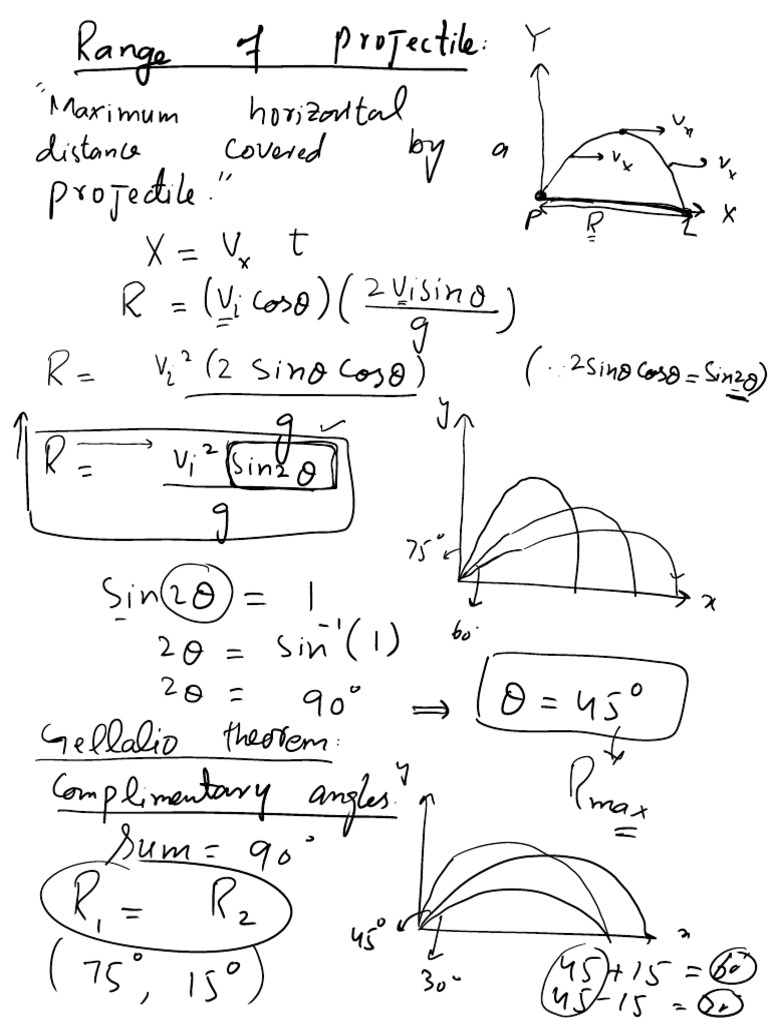 Range of projectile:
"Maximum horizontal
distance covered by a
projectile."
Y
Vx
Vx
Vx
P R L X
X = Vx t
R = (Vi cosθ)(2Visinθ/g)
R = Vi² (2 sinθ cosθ)/g (∵ 2sinθcosθ = sin2θ)
R = Vi² sin2θ/g ✓
y
75°
60°
x
Sin 2θ = 1
2θ = sin⁻¹(1)
2θ = 90° ⇒ θ = 45°
Rmax
Gellalio theorem:
Complimentary angles:
Sum = 90°
R₁ = R₂
(75°, 15°)
y
45°
30°
x
45+15 = 60
45-15 = 30